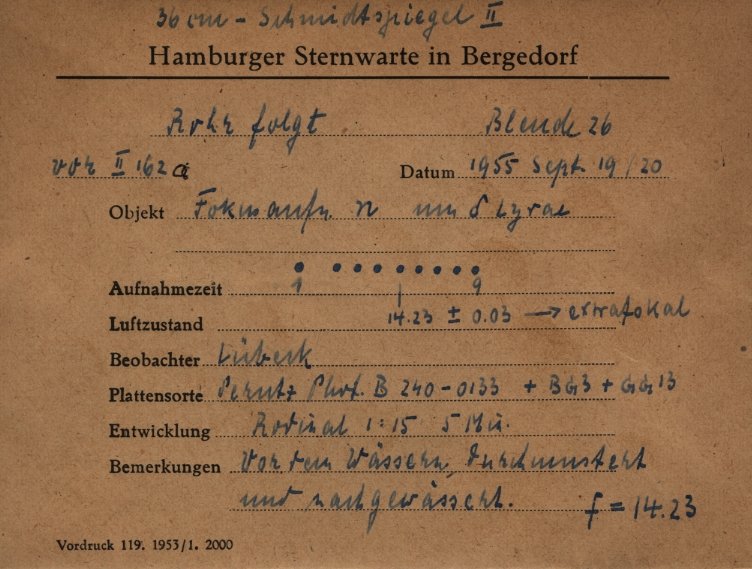 36 cm - Schmidtspiegel II
Hamburger Sternwarte in Bergedorf
Rohr folgt Blende 26
vor II 162 a Datum 1955 Sept. 19/20
Objekt Fokusaufn n um δ Lyrae
Aufnahmezeit 1 9
Luftzustand 14.23 ± 0.03 → extrafokal
Beobachter Lübeck
Plattensorte Perutz Phot. B 240-0133 + BG3 + GG13
Entwicklung Rodinal 1:15 5 Min.
Bemerkungen Vor dem Wässern durchmustert
und nachgewässert. f = 14.23
Vordruck 119. 1953/1. 2000